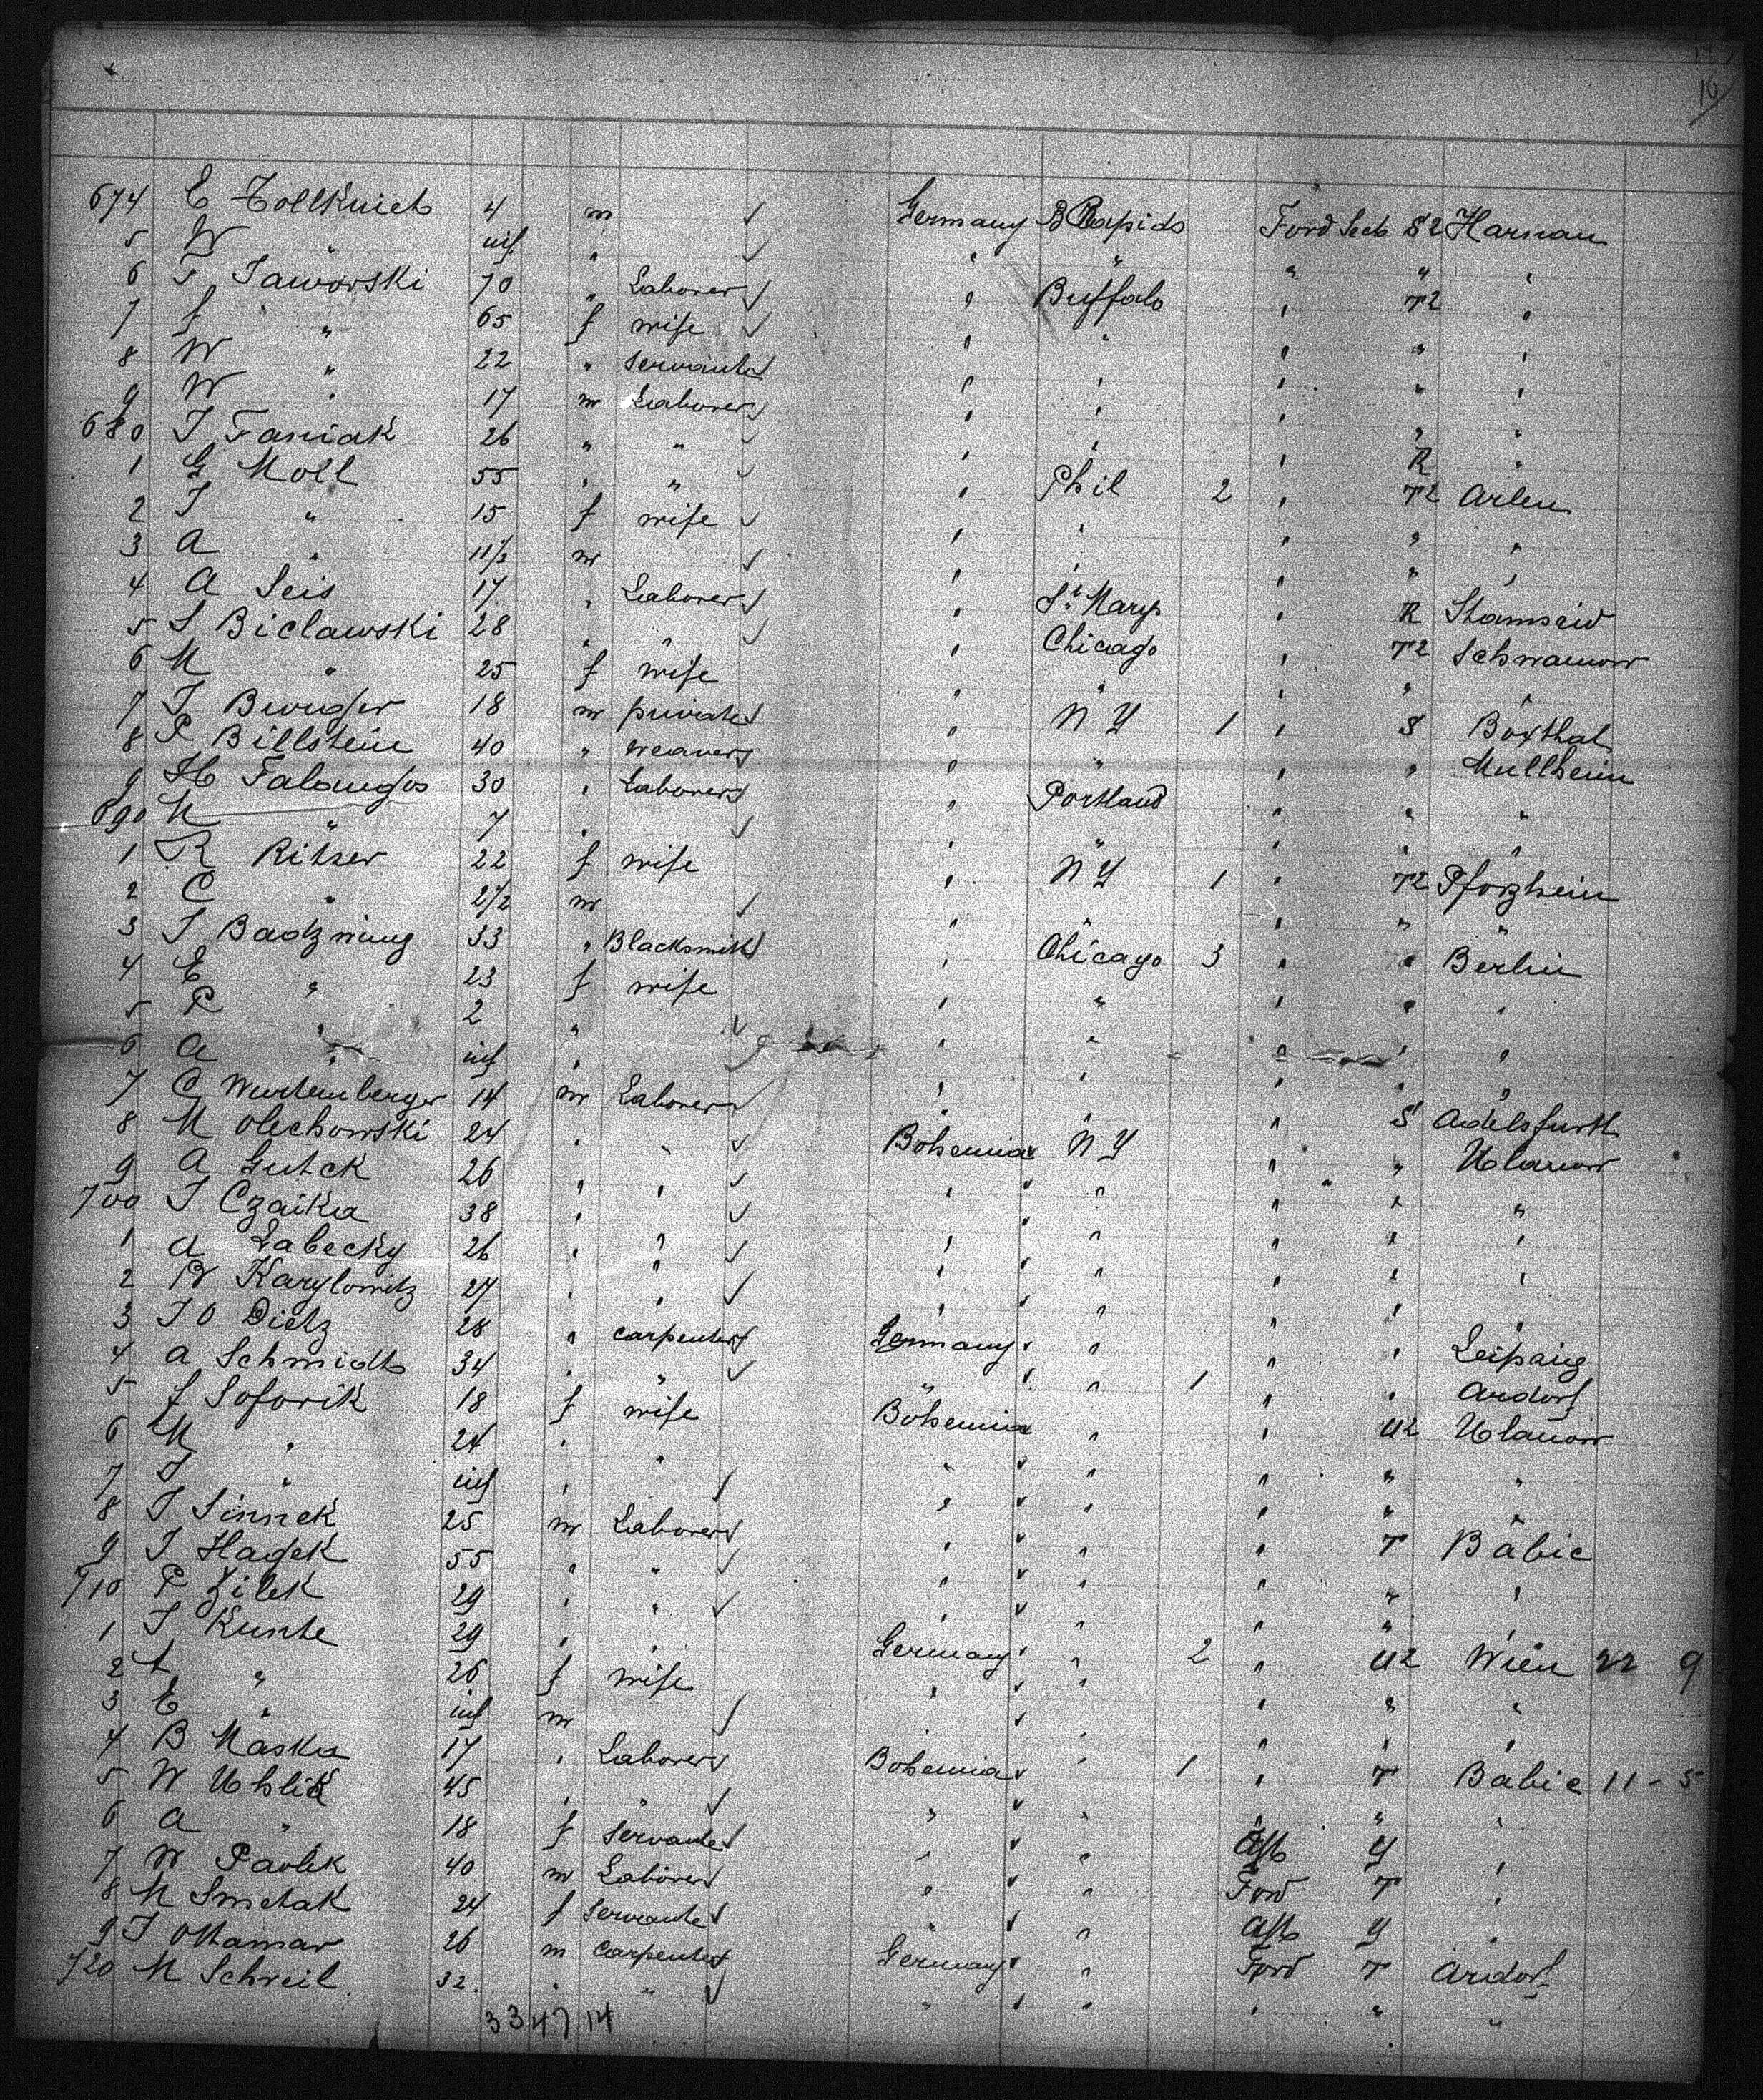 16
674 E Tollkniet 4 m Germany B Rapids Ford Seck S2 Harnau
5 W " inf " " " " " "
6 F Jaworski 70 " Laborer " Buffalo " T2 "
7 J " 65 f wife " " " " "
8 W " 22 " servant " " " " "
9 W " 17 m Laborer " " " " "
680 J Faniak 26 " " " " " R "
1 G Moll 55 " " " Phil 2 " T2 Arlen
2 J " 15 f wife " " " " "
3 A " 11/2 m " " " " "
4 A Seis 17 " Laborer " St Marys " R Stamsrid
5 S Biclawski 28 " " " Chicago " T2 Schwanow
6 M " 25 f wife " " " " "
7 J Burger 18 m private " N Y 1 " S Boxthal
8 P Billstein 40 " Weaver " " " " Mullheim
9 H Falangos 30 " Laborer " Portland " " "
690 M " 7 " " " " " "
1 R Ritzer 22 f wife " N Y 1 " T2 Pforzheim
2 C " 2 1/2 m " " " " "
3 J Badzmung 33 " Blacksmith " Chicago 3 " " Berlin
4 E " 23 f wife " " " " "
5 P " 2 " " " " " "
6 A " inf " " " " " "
7 C Wurtemberger 14 m Laborer " " " S Adelsfurth
8 M Olechowski 24 " " Bohemia N Y " " Ulanow
9 A Gutck 26 " " " " " " "
700 J Czaika 38 " " " " " " "
1 A Labecky 26 " " " " " " "
2 W Karylowitz 27 " " " " " " "
3 J O Dietz 28 " carpenter Germany " " " Leipzig
4 A Schmidt 34 " " " " 1 " " Ardorf
5 J Soforik 18 f wife Bohemia " " U2 Ulanow
6 M " 24 " " " " " " "
7 J " inf " " " " " "
8 J Sinnek 25 m Laborer " " " T Babic
9 J Hagek 55 " " " " " " "
710 P Zilek 29 " " " " " " "
1 J Kunte 29 " " Germany " 2 " U2 Wien 22 9
2 A " 26 f wife " " " " "
3 E " inf m " " " " "
4 B Maska 17 " Laborer Bohemia " 1 " T Babic 11 - 5
5 W Uhlik 45 " " " " " " "
6 A " 18 f servant " " Y "
7 W Pavlek 40 m Laborer " " Ford T "
8 M Smetak 24 f servant " " Y "
9 J Ottamar 26 m carpenter Germany " Ford T Ardorf
720 M Schreil 32 " " " " " " "
33 47 14